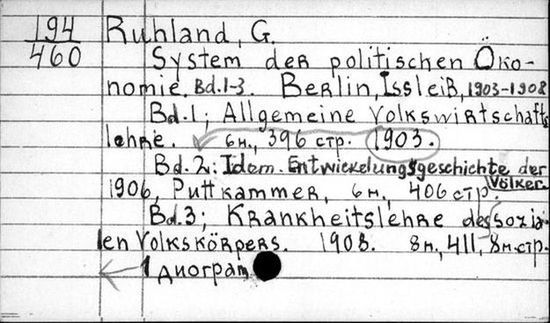 194
460
Ruhland, G.
System der politischen Öko-
nomie. Bd.1-3. Berlin, Issleiß, 1903-1908
Bd.1; Allgemeine Volkswirtschafts
lehre. 6н., 396 стр. 1903.
Bd.2: Idem. Entwickelungsgeschichte der
Völker.
1906, Puttkammer, 6н, 406 стр.
Bd.3; Krankheitslehre des sozia-
len Volkskörpers. 1908. 8н, 411, 8н.стр.
1 диограм